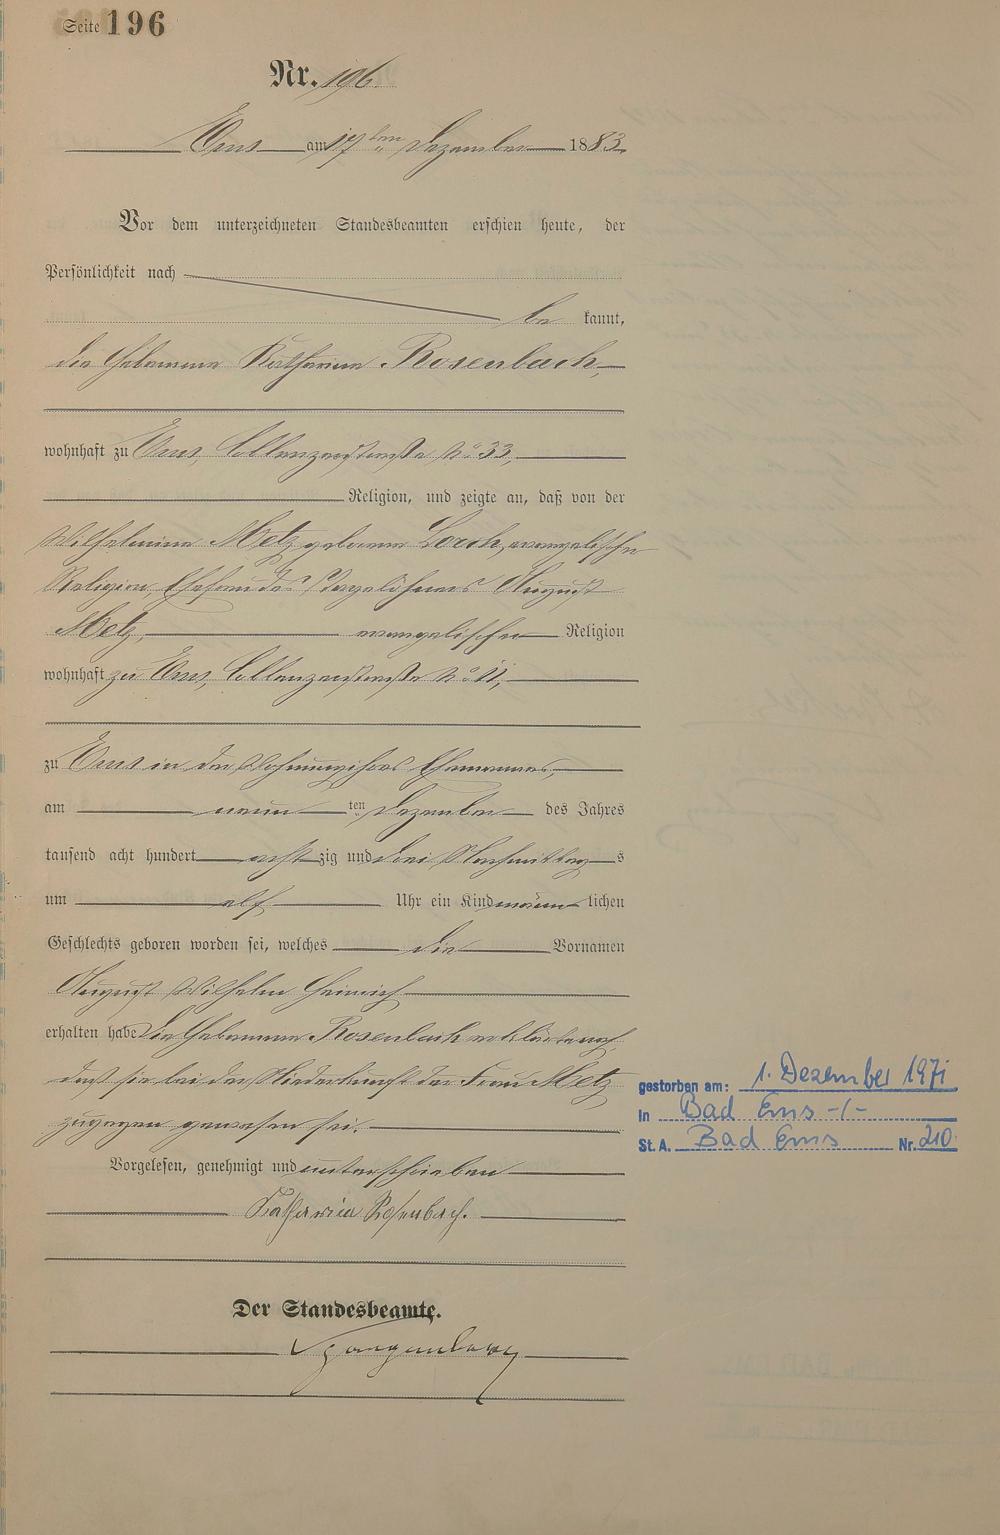 Seite 196
Nr. 196.
Ems am 17ten Dezember 1883.
Vor dem unterzeichneten Standesbeamten erschien heute, der
Persönlichkeit nach
be kannt,
die Hebamme Katharina Rosenbach,
wohnhaft zu Ems, Coblenzerstraße No 33,
Religion, und zeigte an, daß von der
Wilhelmine Metz geborene Lorch, evangelischer
Religion, Ehefrau des Tagelöhners August
Metz, evangelischer Religion
wohnhaft zu Ems, Coblenzerstraße No 11,
zu Ems in der Wohnung ihres Ehemannes,
am neun ten Dezember des Jahres
tausend acht hundert acht zig und drei Nachmittag s
um elf Uhr ein Kind männ lichen
Geschlechts geboren worden sei, welches die Vornamen
August Wilhelm Heinrich
erhalten habe. Die Hebamme Rosenbach erklärte noch,
daß sie bei der Niederkunft der Frau Metz
zugegen gewesen sei.
Vorgelesen, genehmigt und unterschrieben
Katharina Rosenbach.
Der Standesbeamte.
Spangenberg
gestorben am: 1. Dezember 1971
in Bad Ems -/-
St. A. Bad Ems Nr. 210.